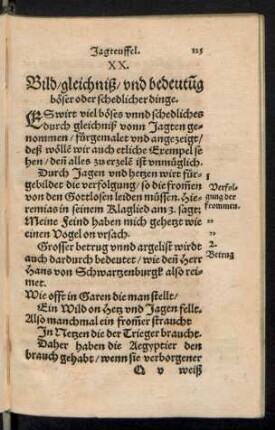 Jagteuffel. 125
XX.
Bild/gleichniß/ vnd bedeutũg
böser oder schedlicher dinge.
ES wirt viel böses vnnd schedliches
durch gleichniß vonn Jagten ge-
nommen/ fürgemalet vnd angezeigt/
deß wöllē wir auch etliche Exempel se-
hen/ deñ alles zu erzelē ist vnmüglich.
Durch Jagen vnd hetzen wirt für-
gebildet die verfolgung/ so die from̃en
von den Gottlosen leiden müssen. Hie-
remias in seinem Klaglied am 3. sagt:
Meine Feind haben mich gehetzt wie
einen Vogel on vrsach.
1
Verfol-
gung der
frommen.
Grosser betrug vnnd argelist wirdt
auch dardurch bedeutet/ wie deñ Herr
Hans von Schwartzenburgk also rei-
met.
2.
Betrug
Wie offt in Garen die man stellt/
Ein Wild on Hetz vnd Jagen fellt.
Also manchmal ein from̃er straucht
In Netzen die der Trieger braucht.
Daher haben die Aegyptier den
brauch gehabt/ wenn sie verborgener
Q v weiß